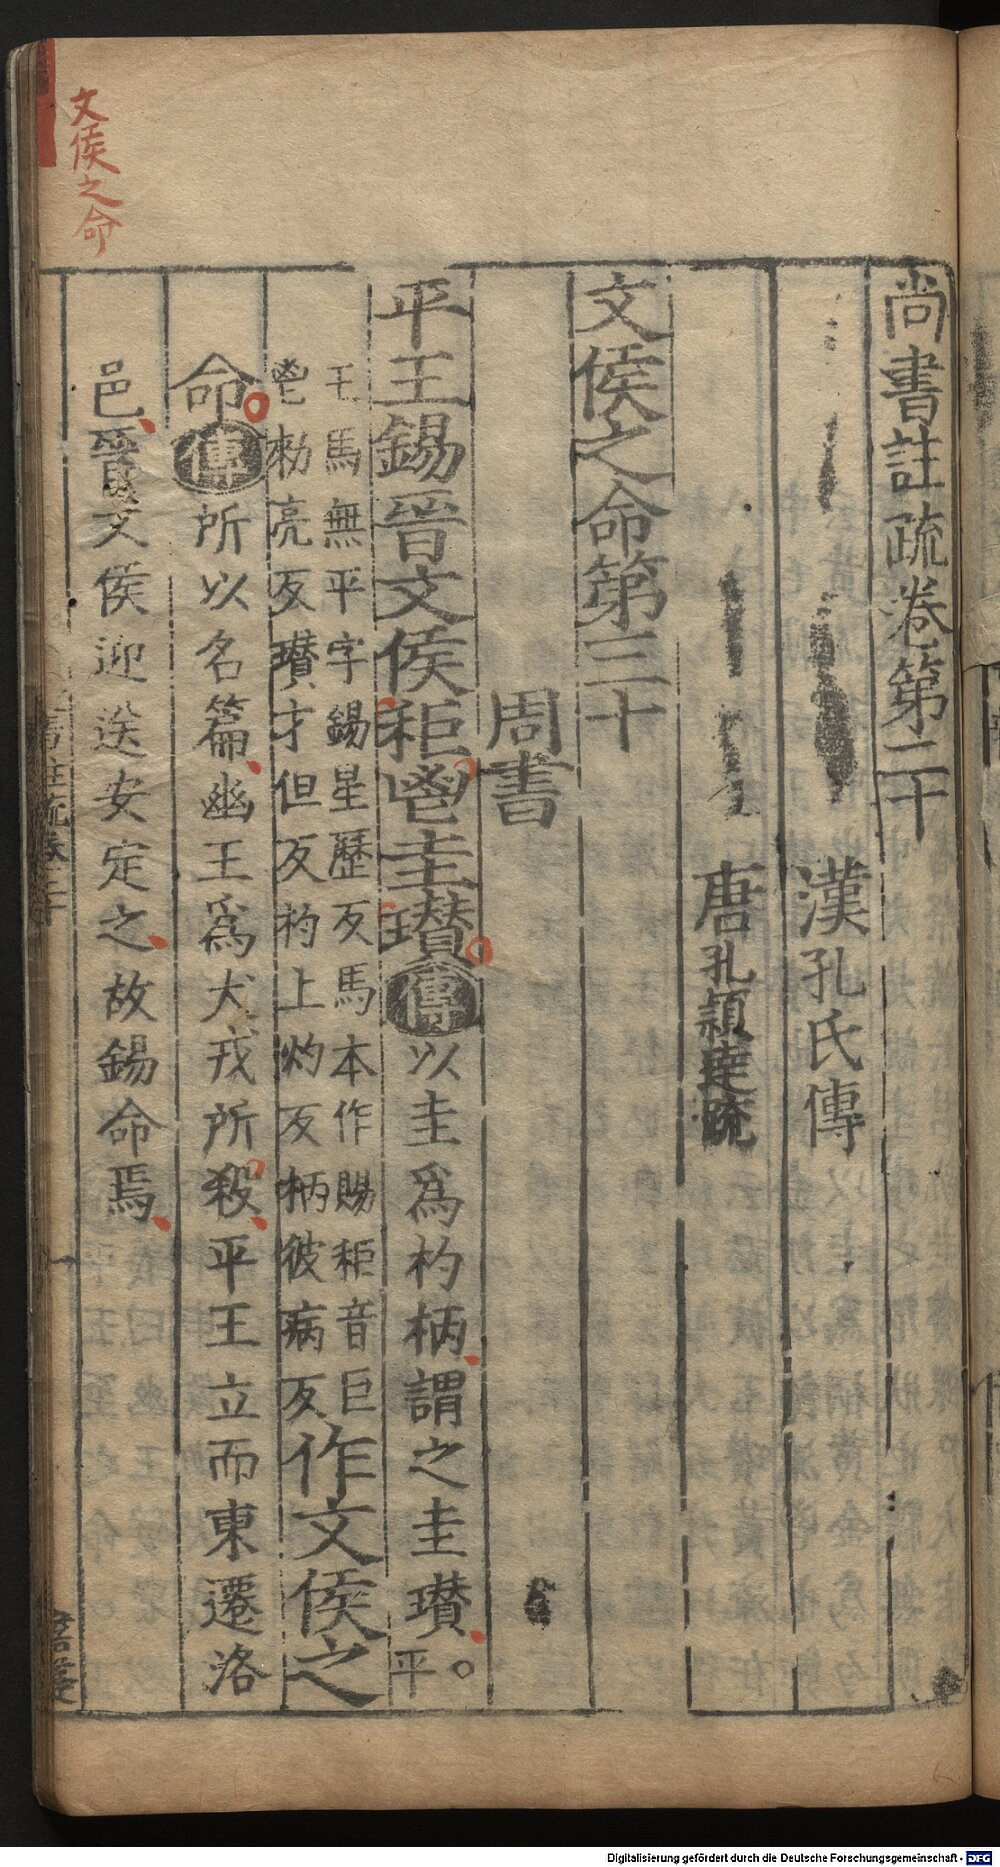 尚書註疏卷第二十
漢孔氏傳
唐孔穎達疏
文侯之命第三十
周書
平王錫晉文侯秬鬯圭瓚傳以圭爲杓柄謂之圭瓚○平
王馬無平字錫星歷反馬本作賜秬音巨
鬯勑亮反瓚才但反杓上灼反柄彼病反作文侯之
命傳所以名篇幽王爲犬戎所殺平王立而東遷洛
邑晉文侯迎送安定之故錫命焉
文侯之命
Digitalisierung gefördert durch die Deutsche Forschungsgemeinschaft - DFG